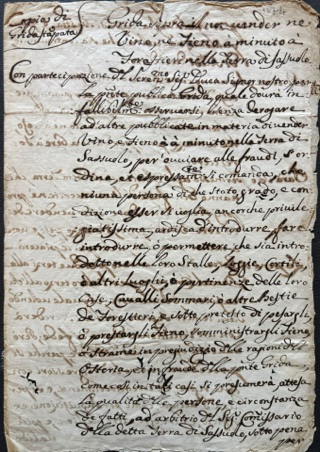 Copia di
Grida stāpata
Grida sopra il non vander ne
Vino, ne Fieno à minuto à
Forastieri nella Terra di Sassuolo.
Con partecipazione del Seren.mo Sig. Duca Sig.r nostro, per
la pnte publica Grida, quale dourà in
osseruarsi, senza derogare
ad altre publicate in materia di uender
Vino, e Fieno à minuto nella Terra di
Sassuolo, per ouuiare alle fraudi, s'or
dina, et espressam.te si comanda, che
niuna persona di che stato, grado, e con
dizione esser si uoglia, ancorche priuile
giatissima, ardisca d'introdurre, far
introdurre, ò permettere che sia intro
dotto nelle loro Stalle, Loggie, Cortili,
ò altri luoghi, ò pertinenze delle loro
Case, Caualli, Sommari, ò altre Bestie
de Forestieri, e sotto pretesto di
ò prestargli Fieno, somministrargli Fieno,
ò Strame in pregiudizio
Osteria, et in fraude della pnte Grida,
Come così in tali casi si presumerà attesa
la qualità delle persone, e circonstanza
de fatti, ad arbitrio del Sig.r Comissario
della detta Terra di Sassuolo, sotto pena
per